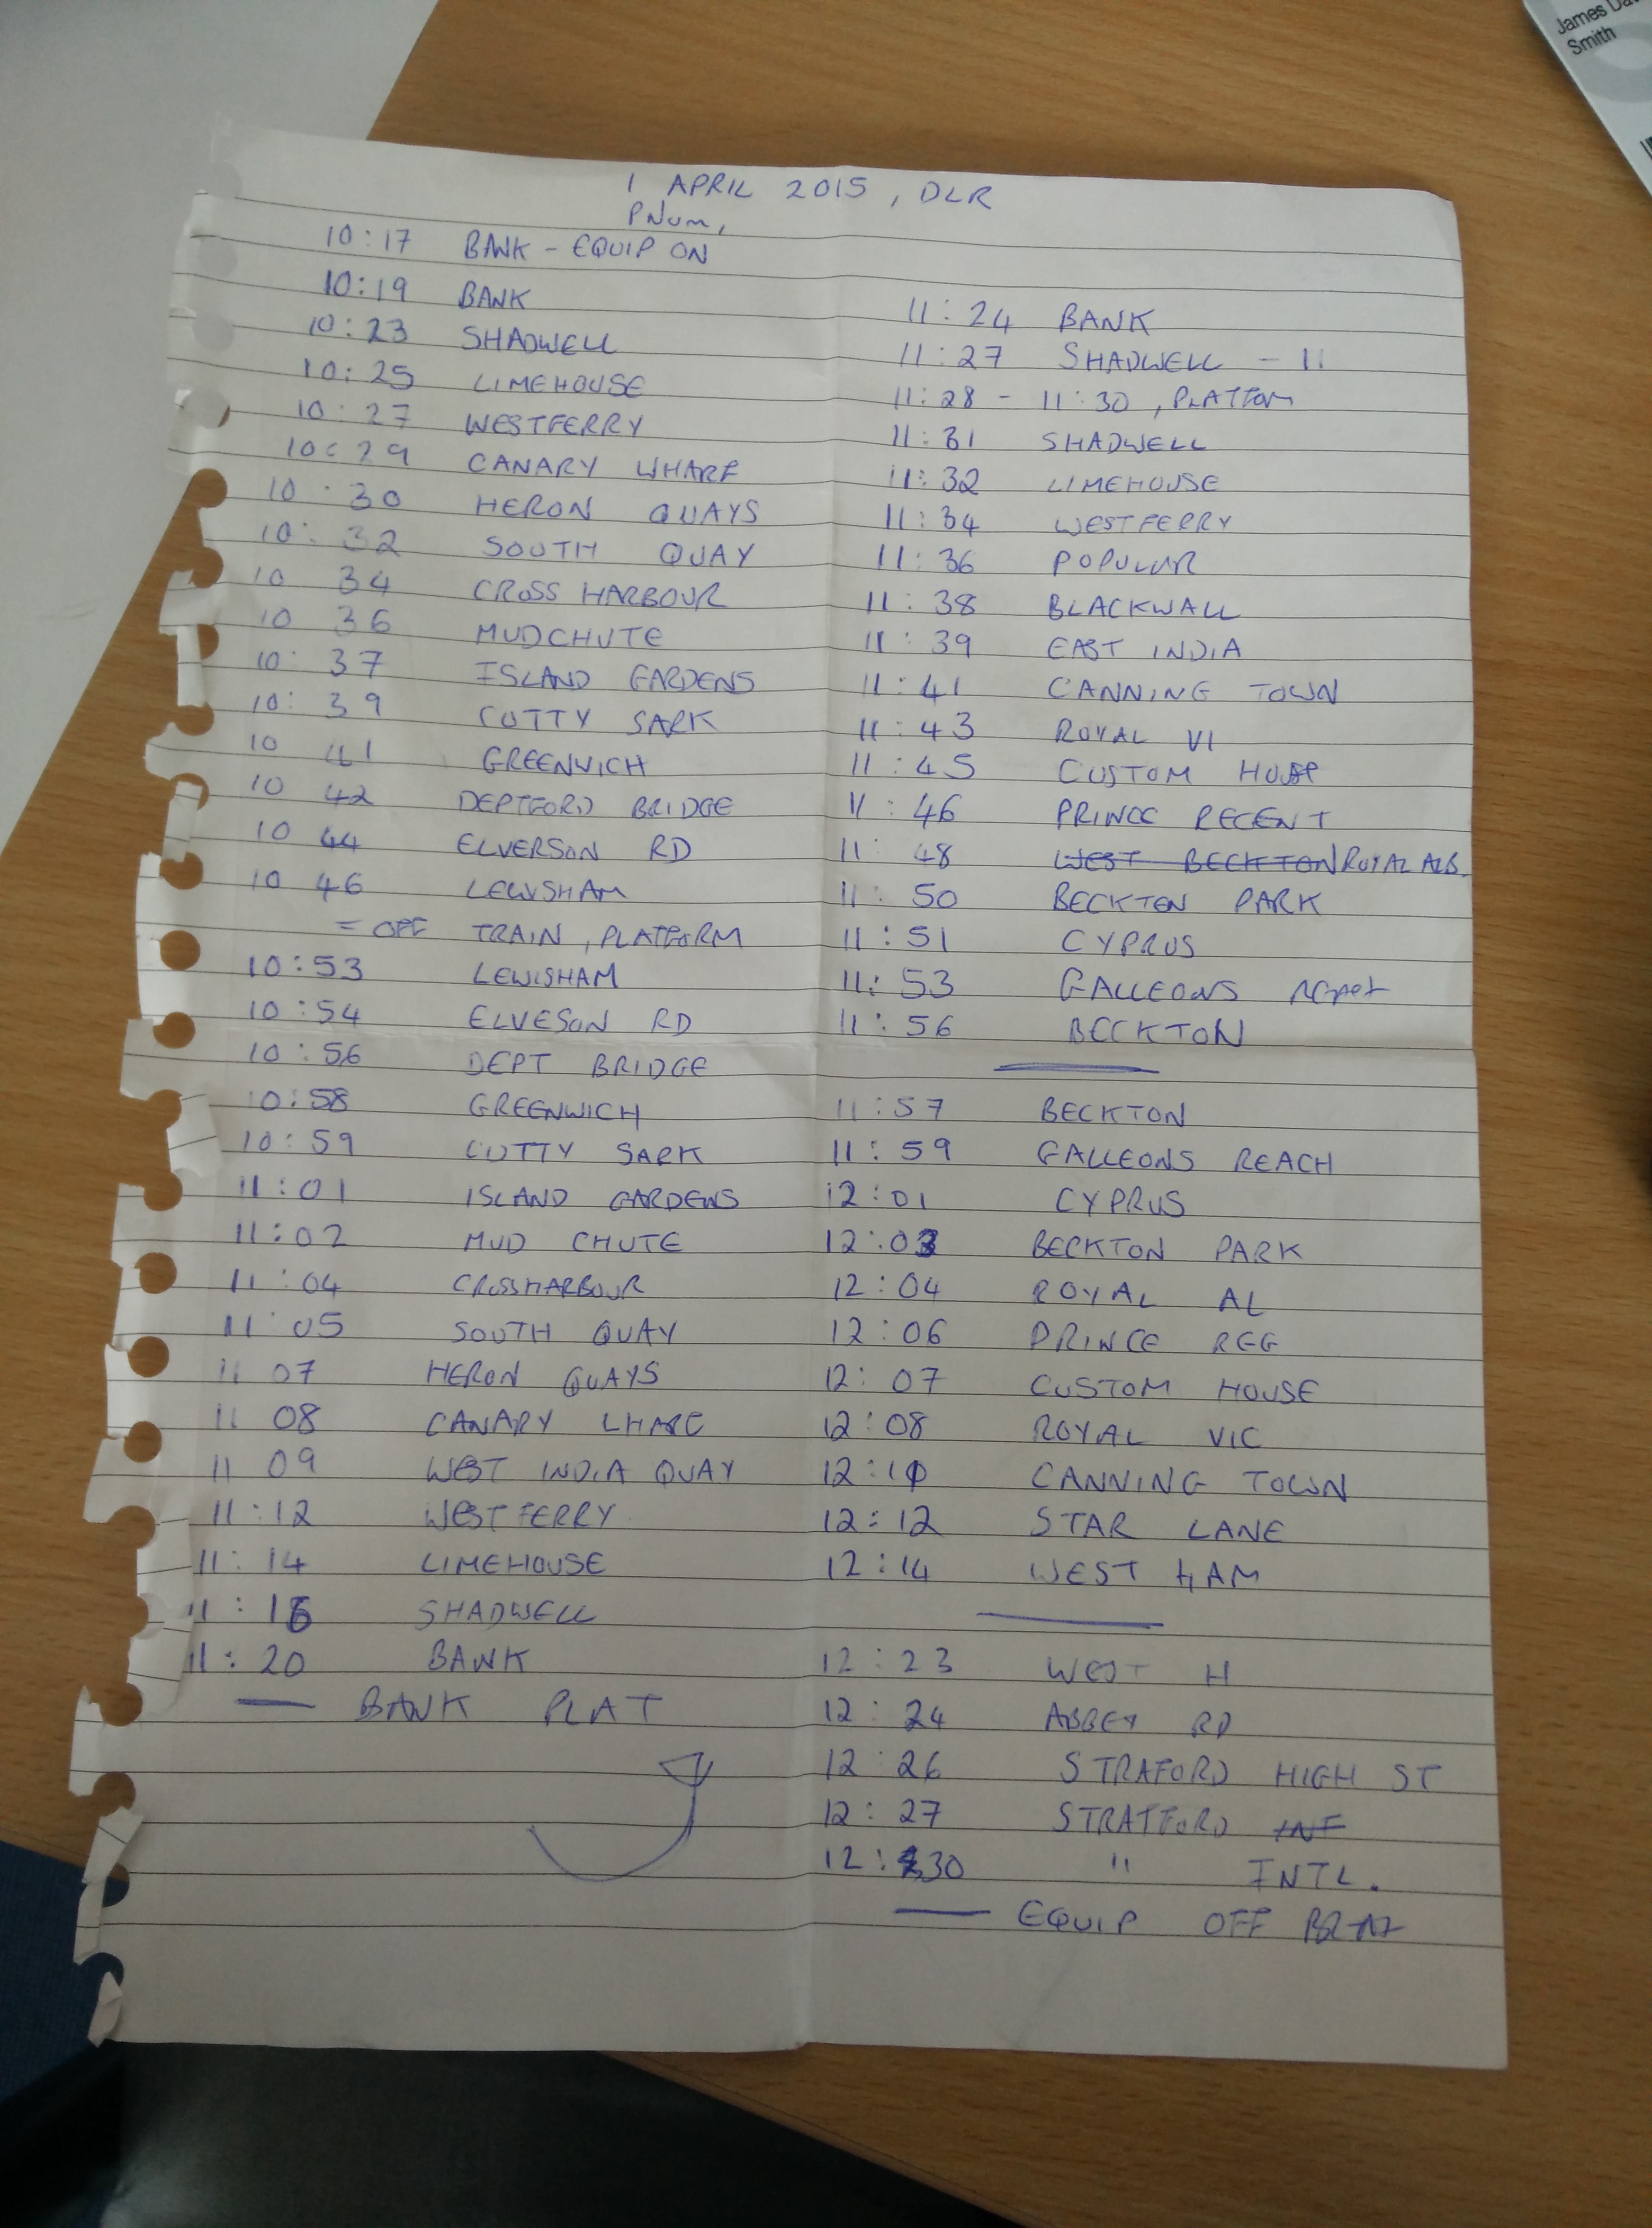 James Da
Smith
1 APRIL 2015, DLR
PNum,
10:17 BANK - EQUIP ON
10:19 BANK
10:23 SHADWELL
10:25 LIMEHOUSE
10:27 WESTFERRY
10:29 CANARY WHARF
10:30 HERON QUAYS
10:32 SOUTH QUAY
10 34 CROSS HARBOUR
10 36 MUDCHUTE
10:37 ISLAND GARDENS
10:39 CUTTY SARK
10 41 GREENWICH
10 42 DEPTFORD BRIDGE
10 44 ELVERSON RD
10 46 LEWISHAM
= OFF TRAIN, PLATFORM
10:53 LEWISHAM
10:54 ELVESON RD
10:56 DEPT BRIDGE
10:58 GREENWICH
10:59 CUTTY SARK
11:01 ISLAND GARDENS
11:02 MUD CHUTE
11:04 CROSSHARBOUR
11:05 SOUTH QUAY
11 07 HERON QUAYS
11 08 CANARY WHARF
11 09 WEST INDIA QUAY
11:12 WESTFERRY
11:14 LIMEHOUSE
11:16 SHADWELL
11:20 BANK
— BANK PLAT
11:24 BANK
11:27 SHADWELL - 11
11:28 - 11:30, PLATFOM
11:31 SHADWELL
11:32 LIMEHOUSE
11:34 WESTFERRY
11:36 POPULAR
11:38 BLACKWALL
11:39 EAST INDIA
11:41 CANNING TOWN
11:43 ROYAL VI
11:45 CUSTOM HOUSE
11:46 PRINCE REGENT
11:48 WEST BECKTON ROYAL ALB.
11:50 BECKTON PARK
11:51 CYPRUS
11:53 GALLEONS
11:56 BECKTON
11:57 BECKTON
11:59 GALLEONS REACH
12:01 CYPRUS
12:03 BECKTON PARK
12:04 ROYAL AL
12:06 PRINCE REG
12:07 CUSTOM HOUSE
12:08 ROYAL VIC
12:10 CANNING TOWN
12:12 STAR LANE
12:14 WEST HAM
12:23 WEST H
12:24 ABBEY RD
12:26 STRAFORD HIGH ST
12:27 STRATFORD INF
12:30 " INTL.
— EQUIP OFF